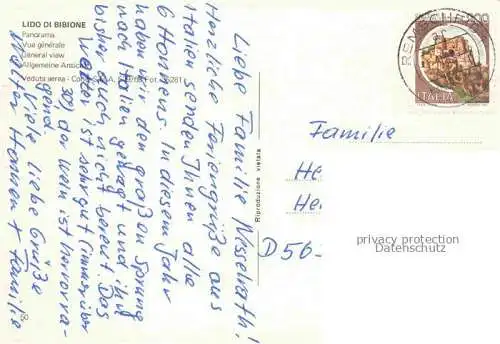 LIDO DI BIBIONE
Panorama
Vue générale
General view
Allgemeine Ansicht
Veduta aerea
Liebe Familie Nesselrath!
Herzliche Feriengrüße aus
Italien senden Ihnen alle
6 Hannens. In diesem Jahr
haben wir den großen Sprung
nach Italien gewagt und ihn
bisher auch nicht bereut. Das
Wetter ist sehr gut (immer über
30) der Wein ist hervorra-
gend.
Viele liebe Grüße
Walter Hannen + Familie
Riproduzione vietata
ITALIA
Familie
He
He
D 56-
privacy protection
DATENSCHUTZ
50